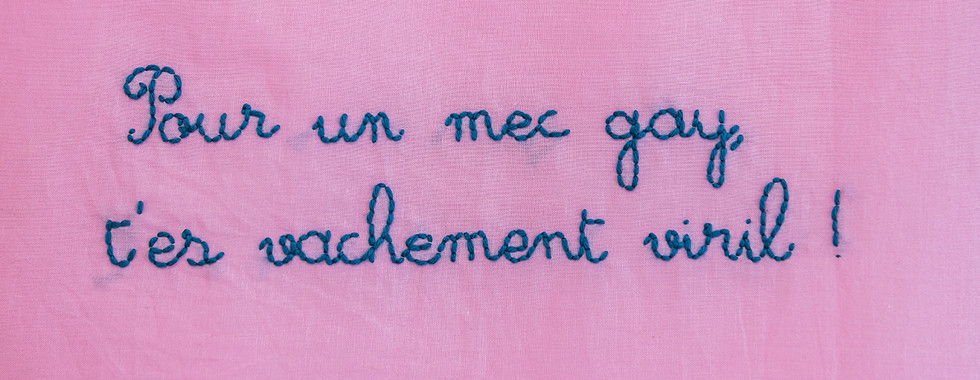 Pour un mec gay,
t'es vachement viril !